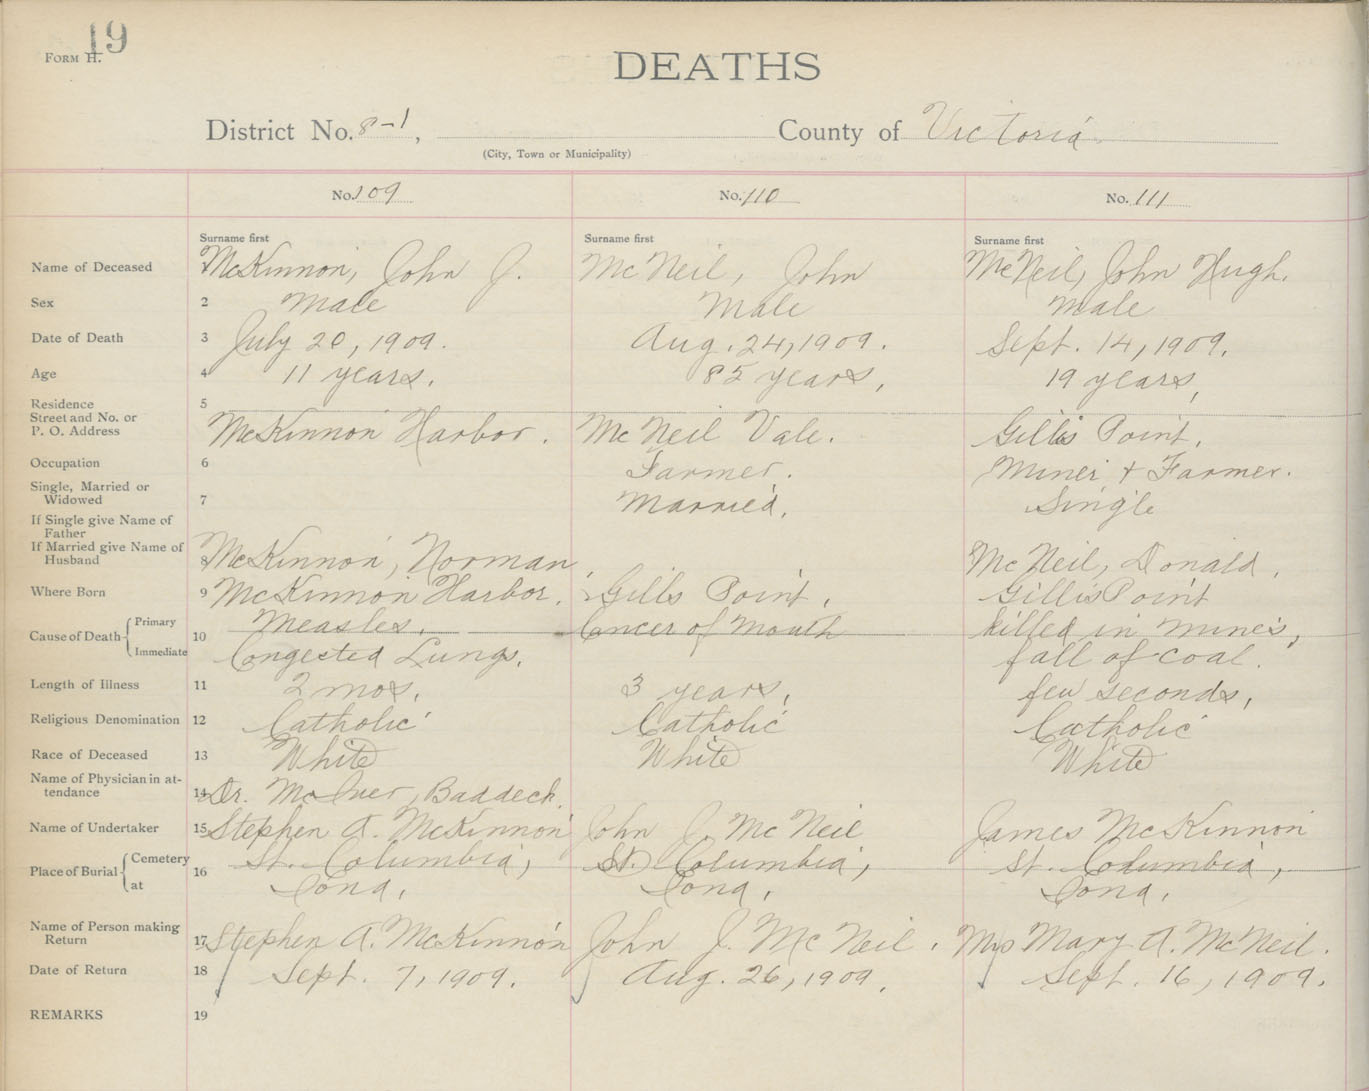 19
FORM H.
DEATHS
District No. 8-1, County of Victoria
(City, Town or Municipality)
No. 109 No. 110 No. 111
Surname first Surname first Surname first
Name of Deceased McKinnon, John J. McNeil, John McNeil, John Hugh.
Sex 2 Male Male Male
Date of Death 3 July 20, 1909. Aug. 24, 1909. Sept. 14, 1909.
Age 4 11 years. 85 years, 19 years,
Residence 5
Street and No. or
P. O. Address McKinnon Harbor. McNeil Vale. Gillis Point.
Occupation 6 Farmer. Miner & Farmer.
Single, Married or
Widowed 7 Married. Single
If Single give Name of
Father
If Married give Name of
Husband 8 McKinnon, Norman McNeil, Donald.
Where Born 9 McKinnon Harbor. Gills Point, Gillis Point
Cause of Death Primary 10 Measles. Cancer of Mouth killed in mines,
Immediate Congested Lungs. fall of coal.
Length of Illness 11 2 mos. 3 years, few seconds,
Religious Denomination 12 Catholic Catholic Catholic
Race of Deceased 13 White White White
Name of Physician in at-
tendance 14 Dr. McIver, Baddeck.
Name of Undertaker 15 Stephen A. McKinnon John J. McNeil James McKinnon
Place of Burial Cemetery 16 St. Columbia, St. Columbia, St. Columbia,
at Iona, Iona, Iona,
Name of Person making
Return 17 Stephen A. McKinnon John J. McNeil. Mrs Mary A. McNeil.
Date of Return 18 Sept. 7, 1909. Aug. 26, 1909. Sept. 16, 1909.
REMARKS 19